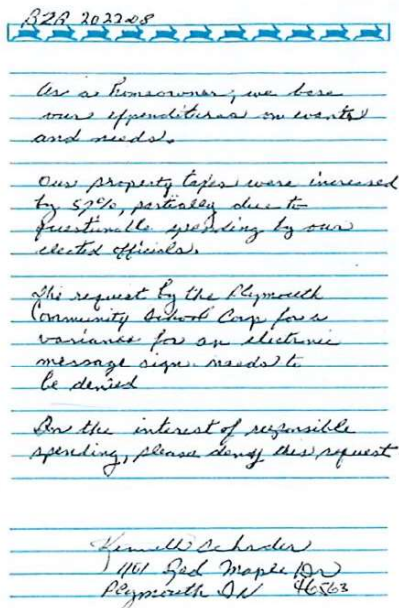 BZA 2022-08
As a homeowner, we base
our expenditures on wants
and needs.
Our property taxes were increased
by 57%, partially due to
questionable spending by our
elected officials.
The request by the Plymouth
Community School Corp for a
variance for an electronic
message sign needs to
be denied
In the interest of responsible
spending, please deny this request
Kenneth Schrader
1101 Red Maple Dr
Plymouth IN 46563